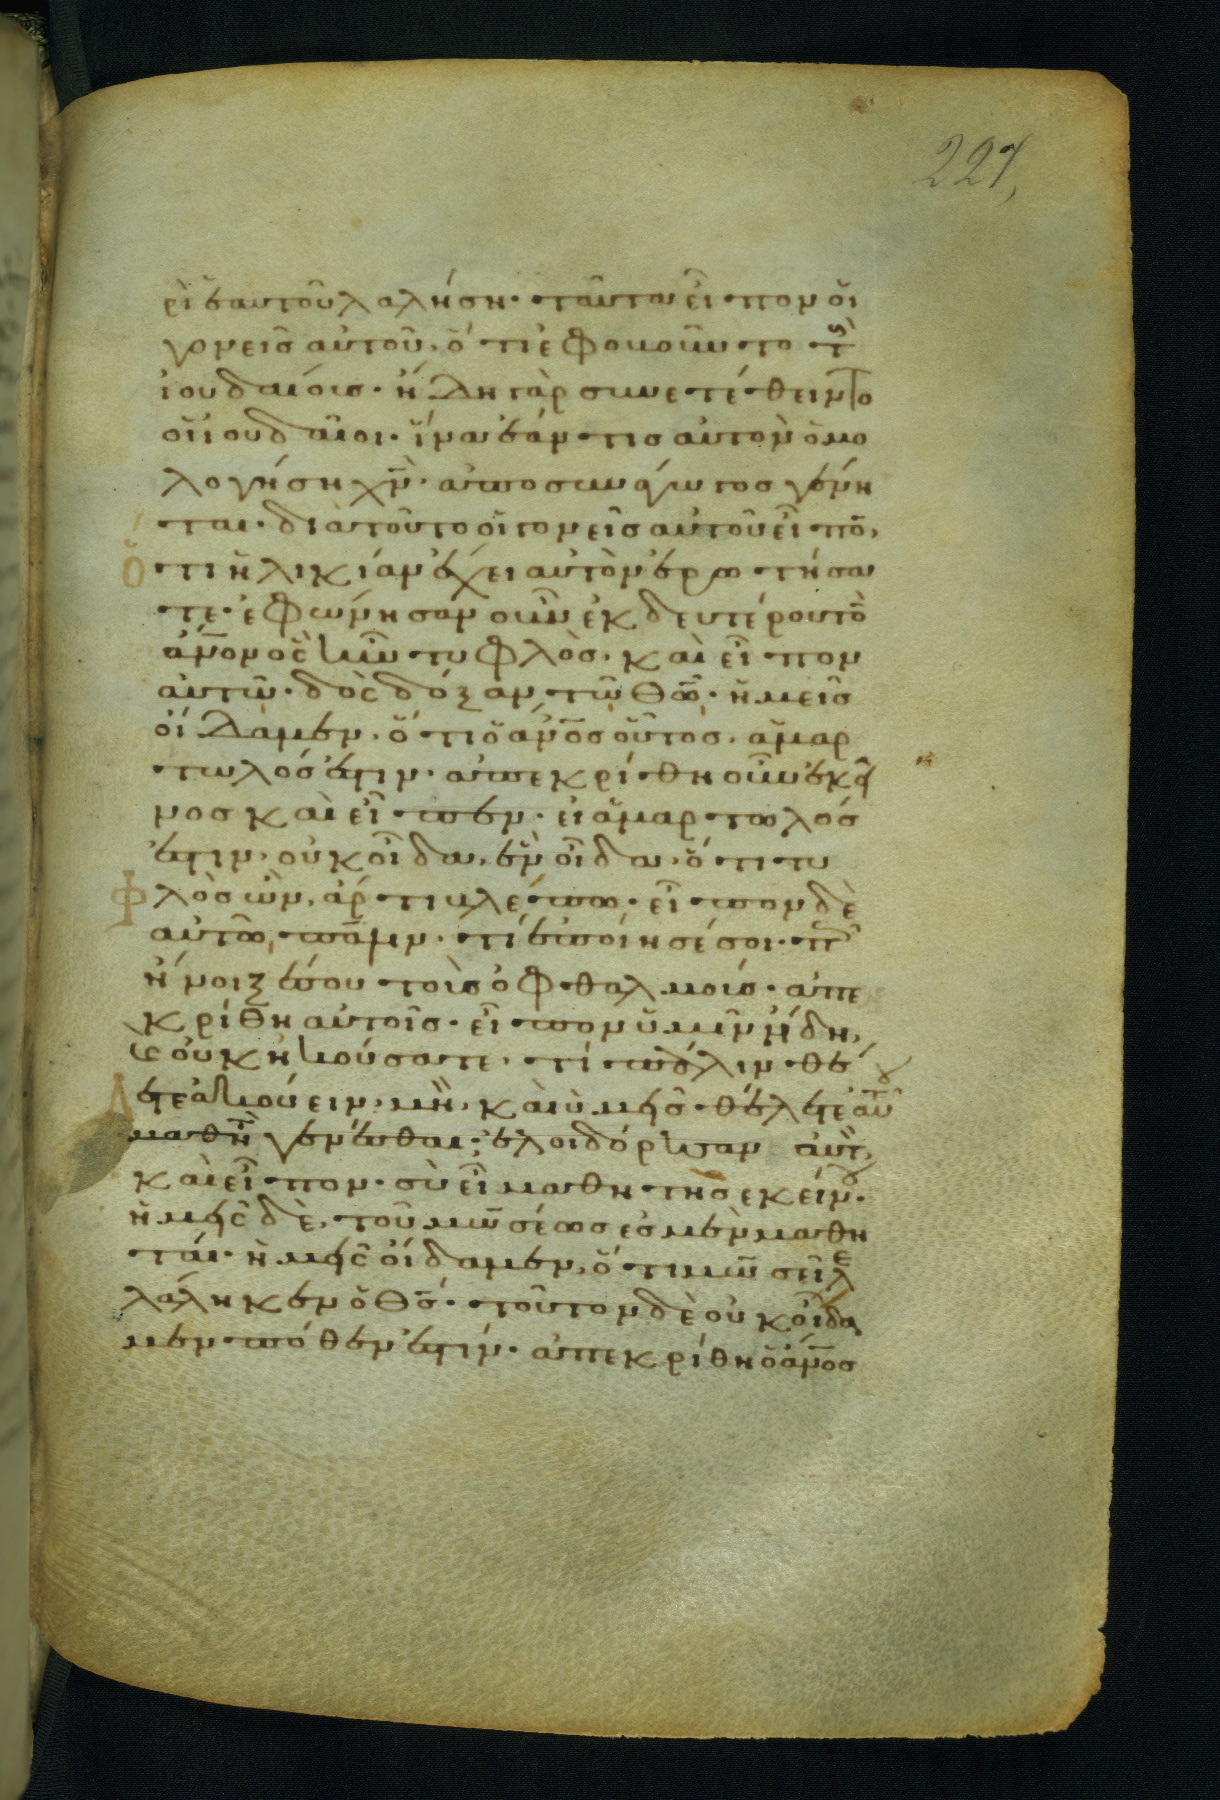 227,
ρὶ ἑαυτοῦ λαλήσῃ· ταῦτα εἶπον οἱ
γονεῖς αὐτοῦ, ὅτι ἐφοβοῦντο τ(οὺς)
ἰουδαίους· ἤδη γὰρ συνετέθειντο
οἱ ἰουδαῖοι· ἵνα ἐάν τις αὐτὸν ὁμο
λογήσῃ χ̅ν̅· ἀποσυνάγωγος γένη
ται· διὰ τοῦτο οἱ γονεῖς αὐτοῦ εἶπο̅,
ὅτι ἡλικίαν ἔχει αὐτὸν ἐρωτήσα
τε· ἐφώνησαν οὖν ἐκ δευτέρου τὸ̅
ἀν̅ον ὃς ἦν τυφλὸς· καὶ εἶπον
αὐτῶ· δὸς δόξαν τῶ θ̅ω̅· ἡμεῖς
οἴδαμεν, ὅτι ὁ ἀν̅ος οὗτος, ἁμαρ
τωλός ἐστιν· ἀπεκρίθη οὖν ἐκεῖ
νος καὶ εἶπεν· εἰ ἁμαρτωλός
ἐστιν, οὐκ οἶδα, ἓν οἶδα, ὅτι τυ
φλὸς ὢν, ἄρτι βλέπω· εἶπον δὲ
αὐτῶ πάλιν· τί ἐποίησέ σοι· πῶς
ἤνοιξέ σου τοὺς ὀφθαλμούς· ἀπε
κρίθη αὐτοῖς· εἶπον ὑμῖν ἤδη,
καὶ οὐκ ἠκούσατε, τί πάλιν θέ
λετε ἀκούειν, μὴ καὶ ὑμεῖς θέλετε αὐτοῦ
μαθηταὶ γενέσθαι; ἐλοιδόρησαν αὐτ(ὸν),
καὶ εἶπον· σὺ εἶ μαθητὴς ἐκείνου·
ἡμεῖς δὲ, τοῦ μωϋσέως ἐσμὲν μαθη
ταί· ἡμεῖς οἴδαμεν, ὅτι μωϋσεῖ λε
λάληκεν ὁ θ̅ς̅· τοῦτον δὲ οὐκ οἴδα
μεν πόθεν ἐστίν· ἀπεκρίθη ὁ ἀν̅ος